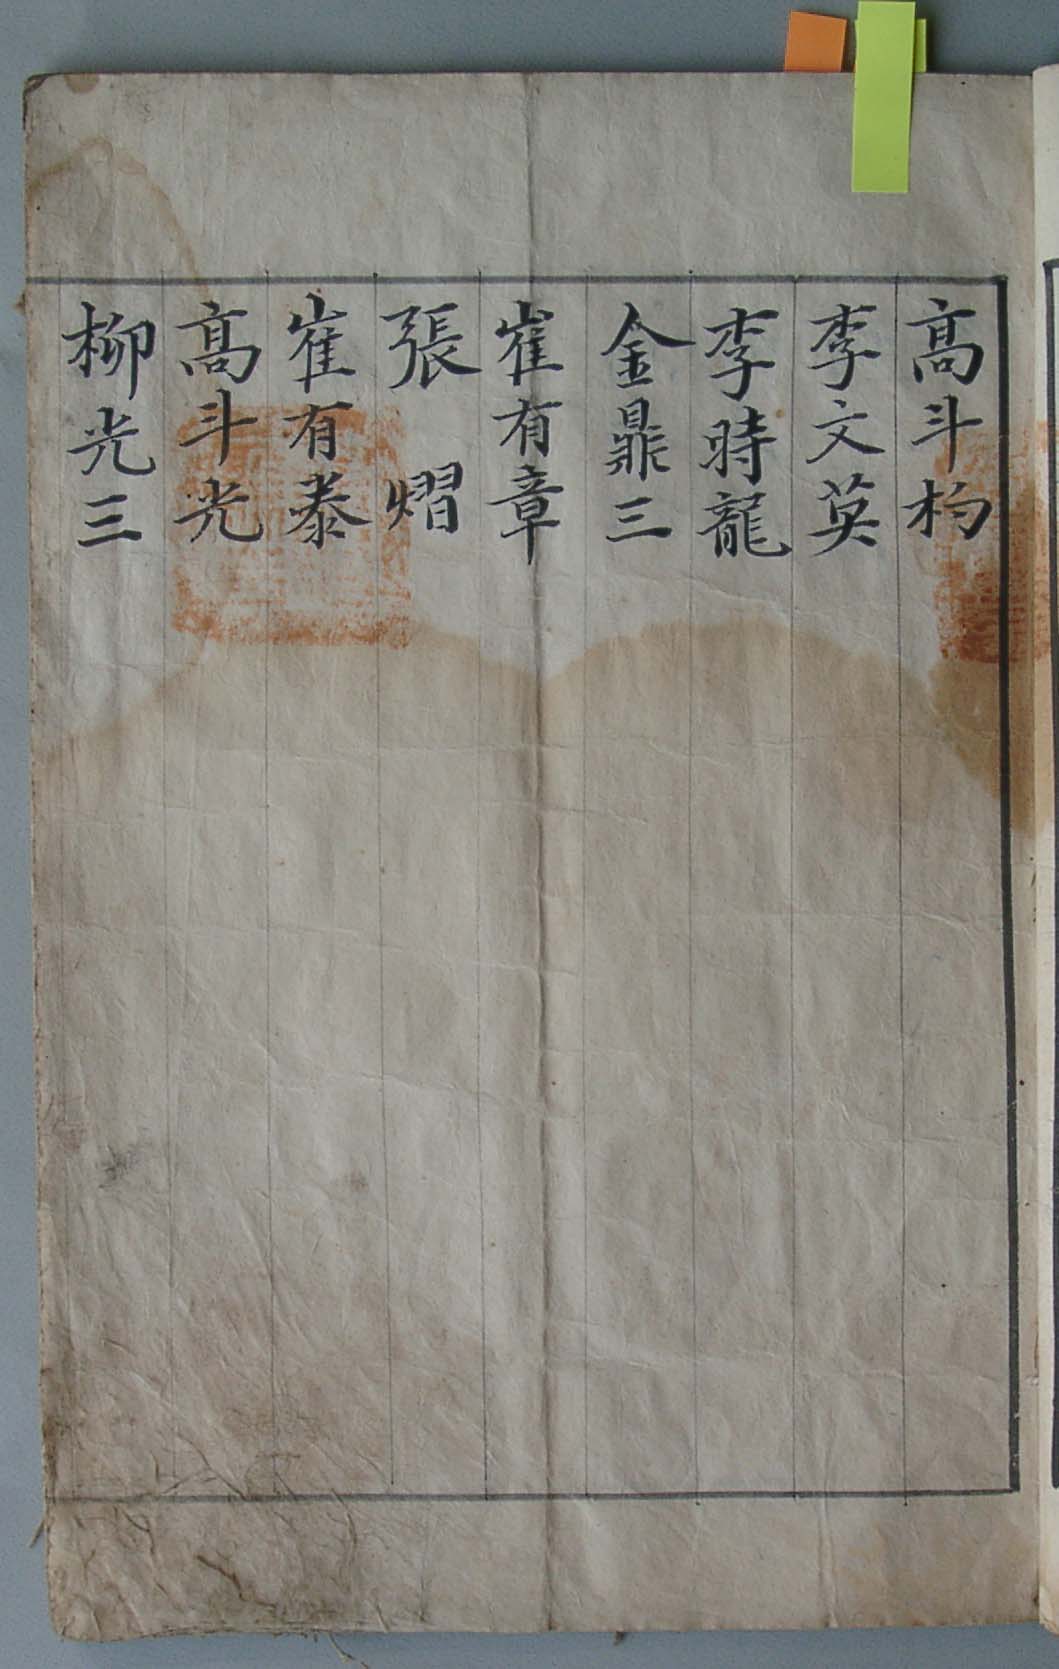 高斗杓
李文英
李時龍
金鼎三
崔有章
張熠
崔有泰
高斗光
柳光三